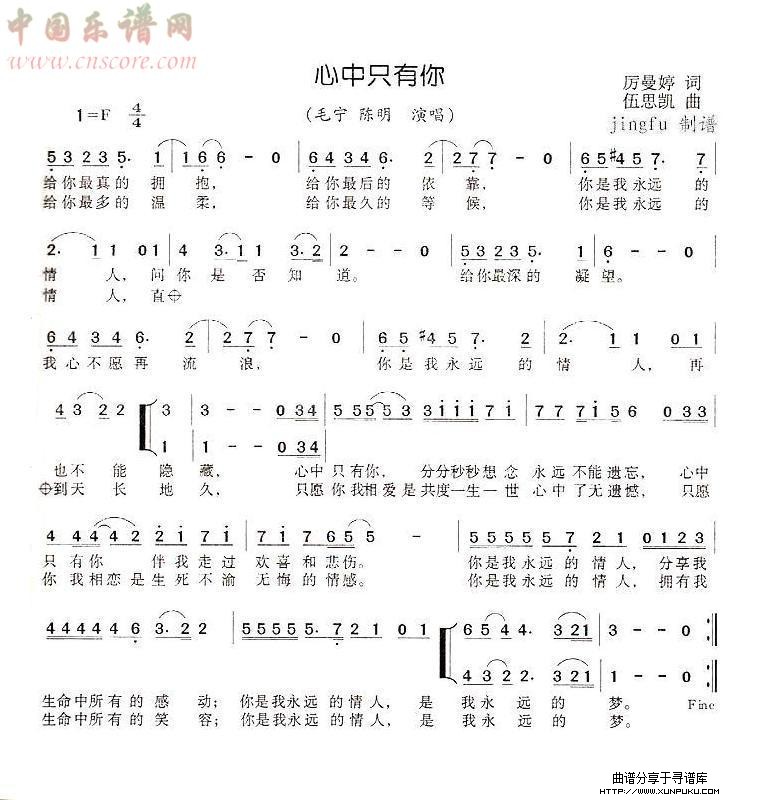 中国乐谱网
www.cnscore.com
心中只有你
厉曼婷 词
伍思凯 曲
jingfu 制谱
1=F 4/4
(毛宁 陈明 演唱)
5 3 2 3 5. 1 | 1 6 6 - 0 | 6 4 3 4 6. 2 | 2 7 7 - 0 | 6 5 #4 5 7. 7 |
给你最真的 拥 抱, 给你最后的 依 靠, 你是我永远的
给你最多的 温 柔, 给你最久的 等 候, 你是我永远的
2. 1 1 0 1 | 4 3. 1 1 3. 2 | 2 - - 0 | 5 3 2 3 5. 1 | 6 - - 0 |
情 人, 问你是否知 道。 给你最深的 凝 望。
情 人, 直⊕
6 4 3 4 6. 2 | 2 7 7 - 0 | 6 5 #4 5 7. 2 | 2. 1 1 0 1 |
我心不愿再 流 浪, 你是我永远 的 情 人, 再
4 3 2 2 3 | 3 - - 0 3 4 | 5 5 5 5 3 3 1 1 1 7 1 | 7 7 7 1 5 6 0 3 3 |
1 | 1 - - 0 3 4
也不能 隐 藏, 心中只有你, 分分秒秒想念 永远不能遗忘, 心中
⊕到天 长 地 久, 只愿你我相爱是共度一生一世 心中了无遗憾, 只愿
4 4 4 4 2 2 1 7 1 | 7 1 7 6 5 5 - | 5 5 5 5 5 7 2 1 0 1 2 3 |
只有你 伴我走过 欢喜和悲伤。 你是我永远的情人, 分享我
你我相恋是生死不渝 无悔的情感。 你是我永远的情人, 拥有我
4 4 4 4 4 6 3. 2 2 | 5 5 5 5 5. 7 2 1 0 1 | 6 5 4 4. 3 2 1 | 3 - - 0 :||
4 3 2 2. 3 2 1 | 1 - - 0 :||
生命中所有的感 动; 你是我永远的情人, 是 我永远的 梦。 Fine
生命中所有的笑 容; 你是我永远的情人, 是 我永远的 梦。
曲谱分享于寻谱库
HTTP://WWW.XUNPUKU.COM